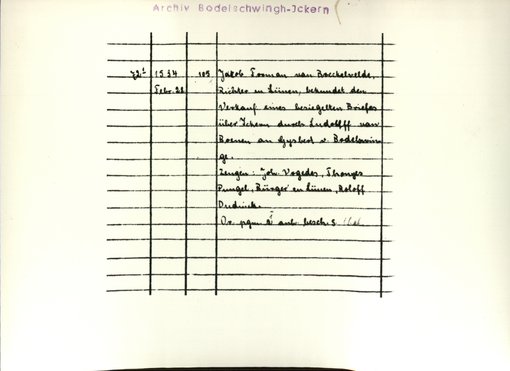 Archiv Bodelschwingh-Ickern
1534 105 Jakob Torman van Bocchelvelde,
Febr. 22 Richter en Lünen, bekundet den
Verkauf eines besiegelten Briefes
über Ickern durch Ludolff van
Boenen an Gysbert v. Bodelswin
ge
Zeugen: Joh. Vogedes, Thonges
Pungel, Bürger en Lünen, Roloff
Or. pgm. anh. besch. S.